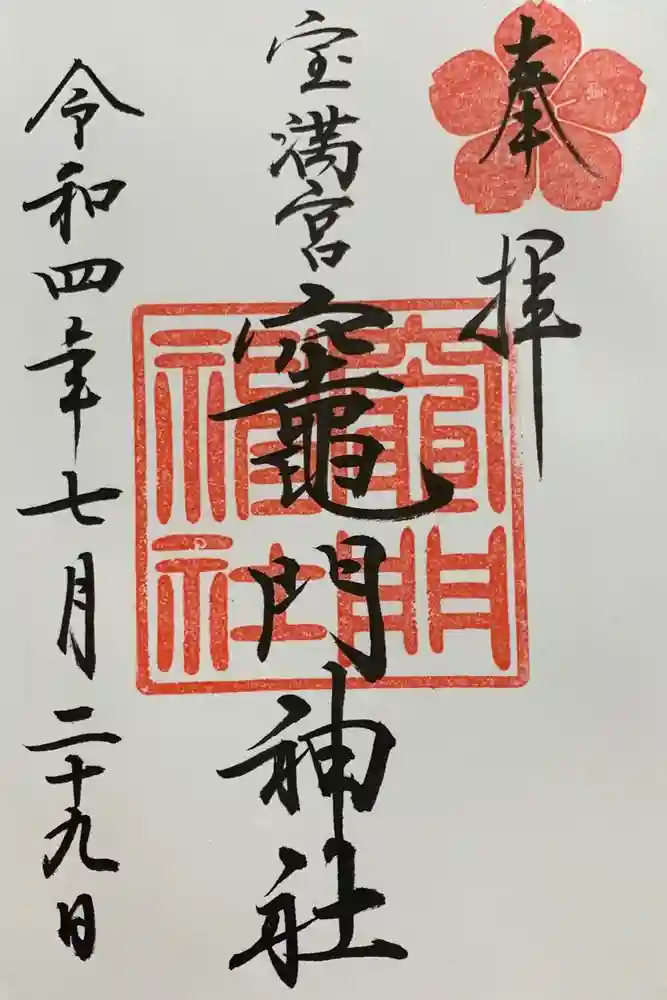 奉拝
宝満宮
竈門神社
竈門
神社
令和四年七月二十九日